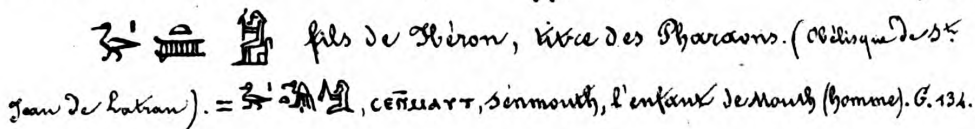 fils de Héron, titre des Pharaons. (Obélisque de St.
Jean de Latran). = , ⲥⲉⲛ̄ⲙⲁⲩⲧ, Sénmouth, l'enfant de Mouth (homme). G. 134.